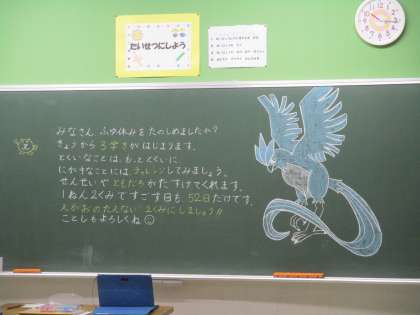 たいせつにしよう
みなさん、ふゆ休みをたのしめましたか？
きょうから3学きがはじまります。
とくいなことは、もっととくいに、
にがてなことには、チャレンジしてみましょう。
せんせいや ともだちがたすけてくれます。
1ねん2くみですごす日も 52日だけです。
えがおのたえない 2くみにしましょう!!
ことしもよろしくね